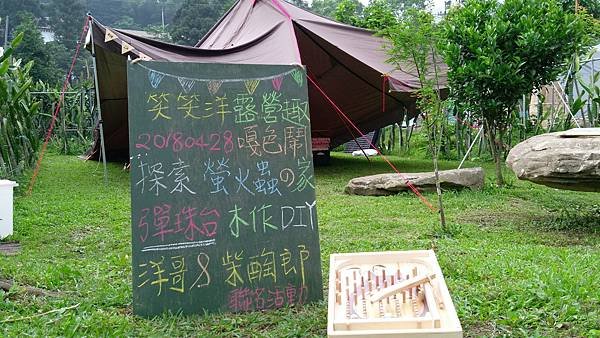 笑笑洋露營趣
20180428嘎色鬧
探索螢火蟲の家
彈珠台木作DIY
洋哥&柴陶郎
聯名活動